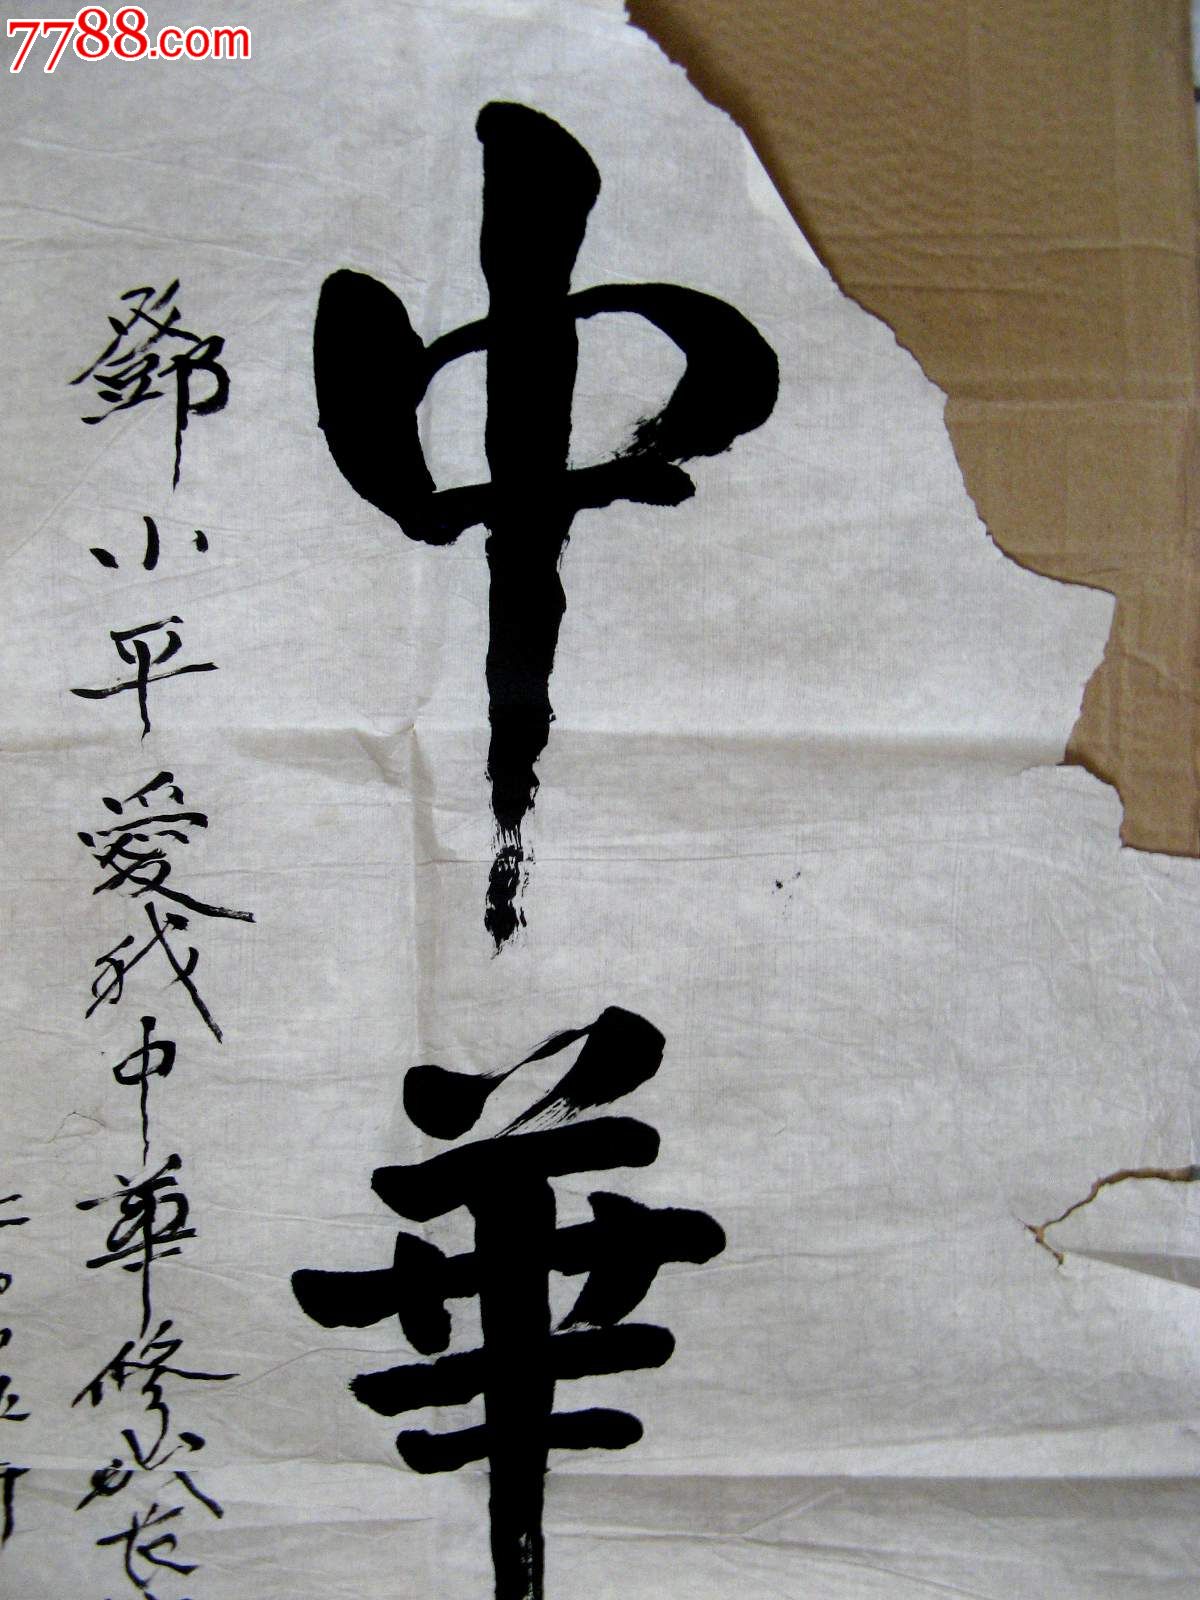 7788.com
中華
鄧小平愛我中華修我长